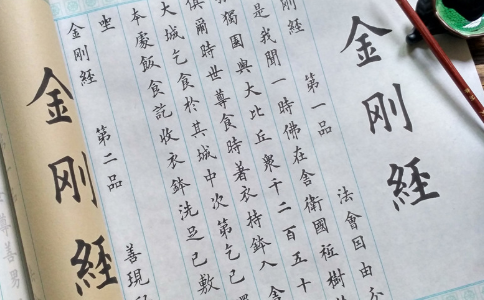 金刚經
法會因由
剛經 第一品
是我聞一時佛在舍衛國祇樹
獨園與大比丘衆千二百五十
俱爾時世尊食時著衣持鉢入舍
大城乞食於其城中次第乞已還
本處飯食訖收衣鉢洗足已敷
坐
金剛經 第二品
善現
金刚經